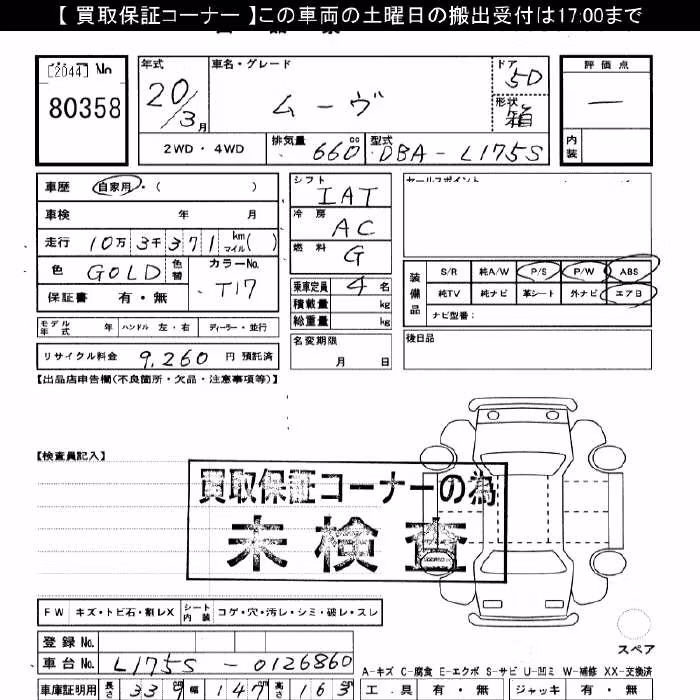 【 買取保証コーナー 】この車両の土曜日の搬出受付は17:00まで
[2044] No
80358
年式
20/3月
車名・グレード
ムーヴ
ドア
5D
形状
箱
評価点
―
内装
2WD・4WD
排気量
660cc
型式
DBA-L175S
車歴 自家用・( )
車検 年 月
走行 10万3千371 km マイル( )
色 GOLD 色替
カラーNo.
T17
保証書 有・無
モデル年式 年 ハンドル 左・右 ディーラー・並行
リサイクル料金 9,260 円 預託済
シフト
IAT
冷房
AC
燃料
G
乗車定員 4 名
積載量 kg
総重量 kg
名変期限
月 日
セールスポイント
装備品
S/R 純A/W P/S P/W ABS
純TV 純ナビ 革シート 外ナビ エアB
ナビ型番:
後日品
【出品店申告欄(不良箇所・欠品・注意事項等)】
【検査員記入】
買取保証コーナーの為
未検査
FW キズ・トビ石・割レX シート内装 コゲ・穴・汚レ・シミ・破レ・スレ
登録No.
車台No. L175S-0126860
車庫証明用 長さ 339 幅 147 高さ 163
スペア
A-キズ C-腐食 E-エクボ S-サビ U-凹ミ W-補修 XX-交換済
工具 有・無 ジャッキ 有・無